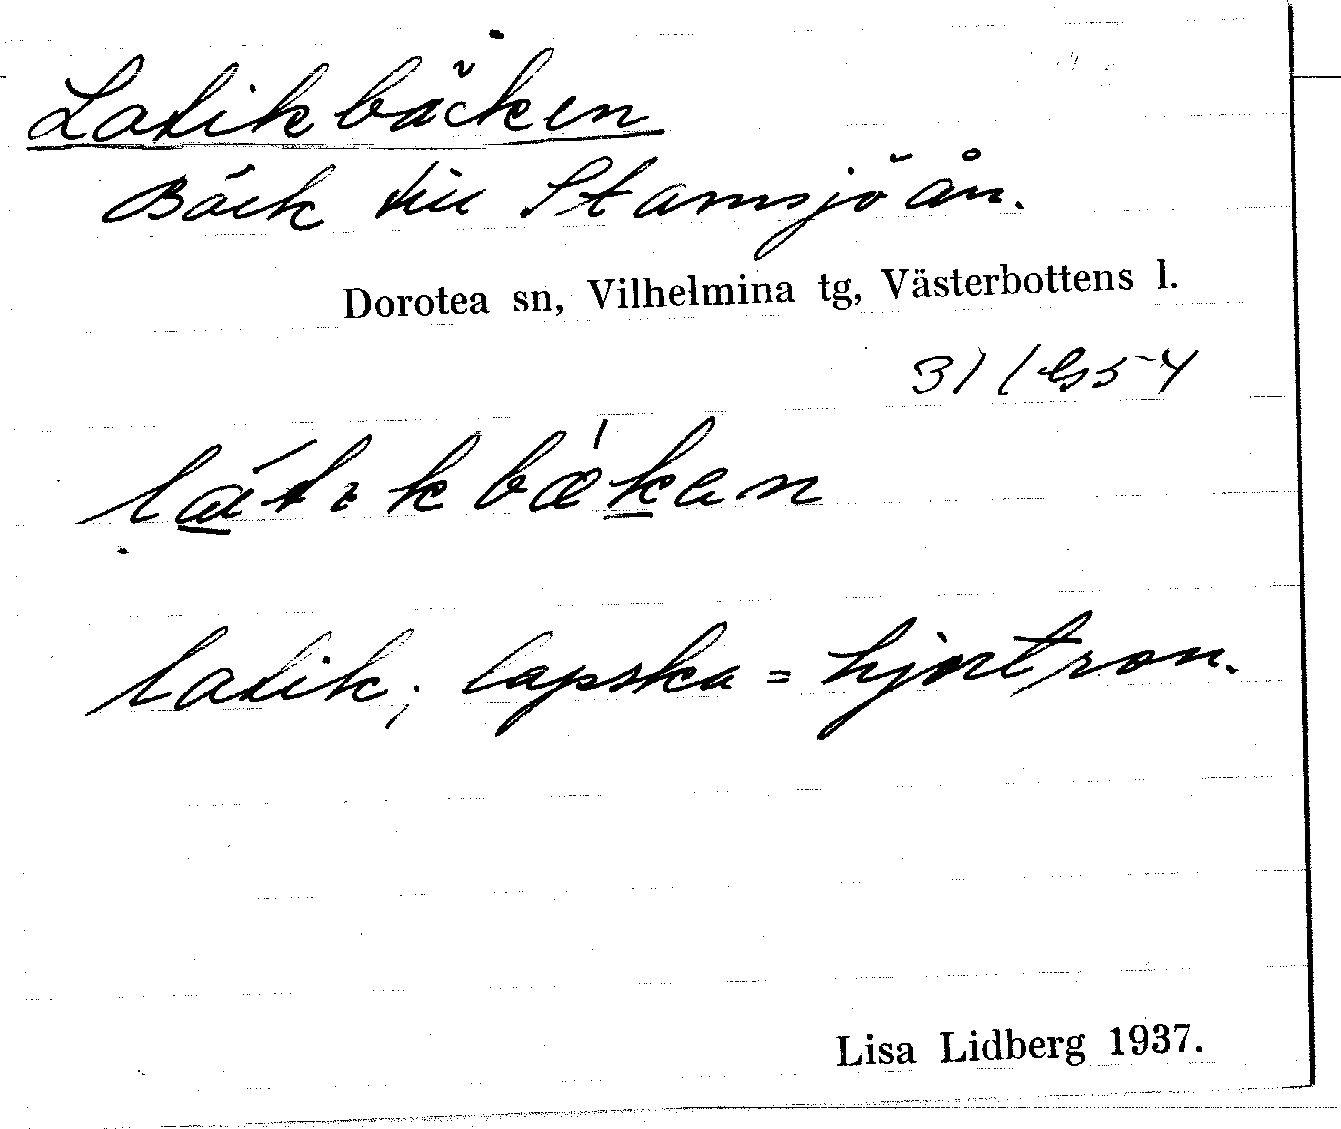 Latikbäcken
Bäck till Stamsjöån.
Dorotea sn, Vilhelmina tg, Västerbottens l.
látıkbækan
latik; lapska = hjortron.
Lisa Lidberg 1937.